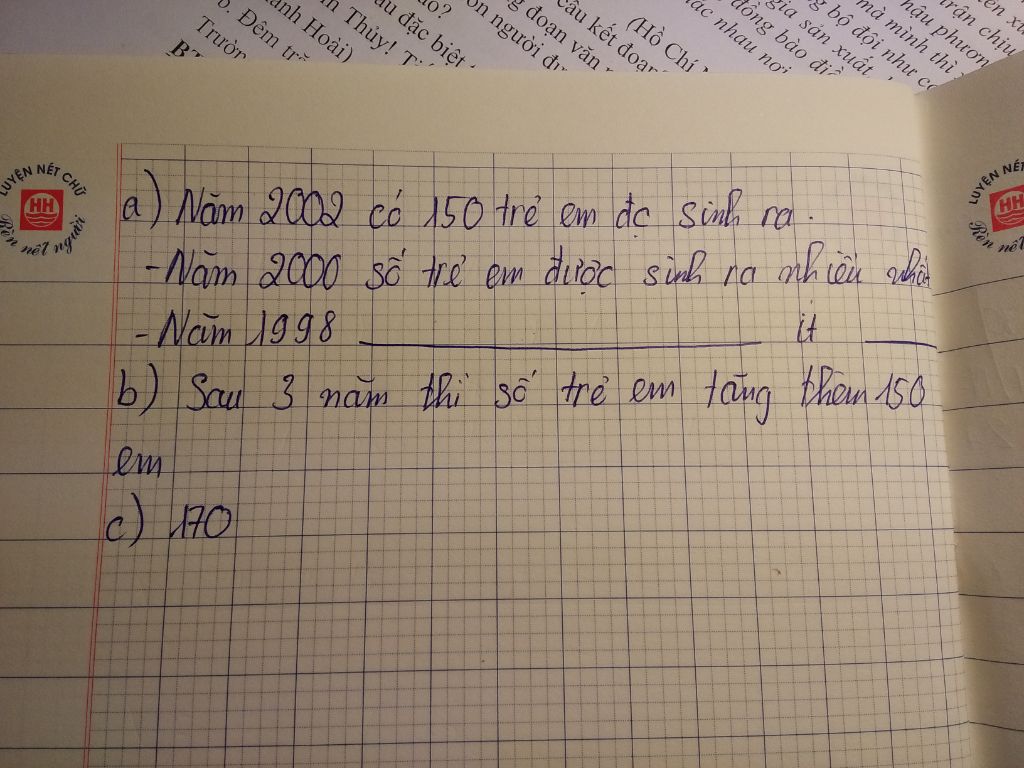 câu kết đoạn
(Hồ Chí
hậu phương
gia sản xuất,
mà mình thì
bộ đội như
đồng bào
nhau
đoạn văn
người
đặc biệt
Thủy!
Đêm
Hoài)
LUYỆN NÉT CHỮ
HH
Rèn nết người
LUYỆN NÉT
HH
Rèn nết
a) Năm 2002 có 150 trẻ em đc sinh ra.
- Năm 2000 số trẻ em được sinh ra nhiều nhất
- Năm 1998 ít
b) Sau 3 năm thì số trẻ em tăng thêm 150
em
c) 170